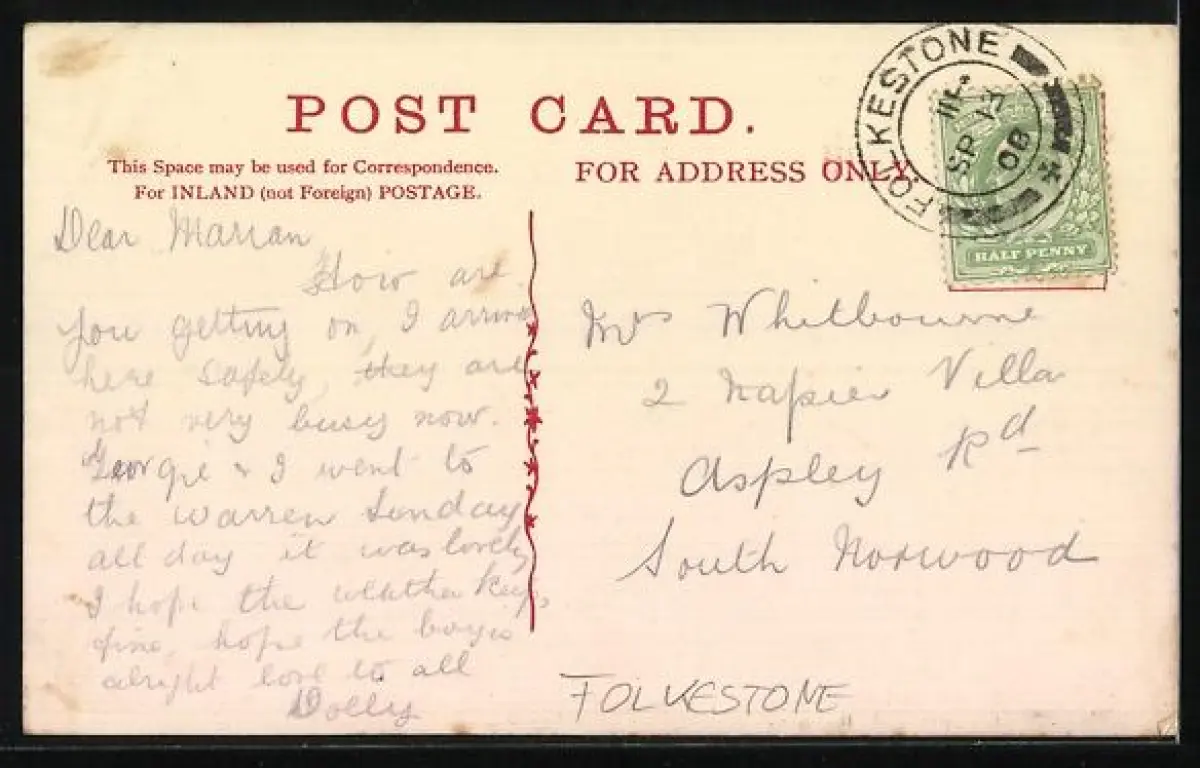 POST CARD.
This Space may be used for Correspondence.
For INLAND (not Foreign) POSTAGE.
FOR ADDRESS ONLY.
FOLKESTONE
SP 17
08
HALF PENNY
Dear Marian
How are
you getting on, I arrived
here safely, they are
not very busy now.
Georgie & I went to
the warren Sunday
all day it was lovely
I hope the weather keeps
fine, hope the boy is
alright love to all
Dolly
Mrs Whitbourne
2 Napier Villa
Aspley Rd
South Norwood
FOLKESTONE